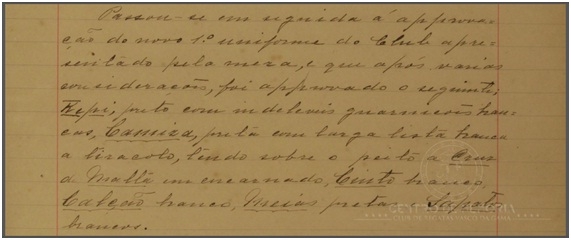 Passou-se em seguida á approva-
ção do novo 1º uniforme do Club apre-
sentado pela meza, e que após varias
considerações, foi approvado o seguinte;
Kepi, preto com indeleveis guarnições bran-
cas, Camiza, preta com larga lista branca
a tiracolo, tendo sobre o peito a Cruz
de Malta em encarnado, Cinto branco,
Calção branco, Meias pretas e Sapatos
brancos.
CENTRO DE MEMÓRIA
CLUB DE REGATAS VASCO DA GAMA